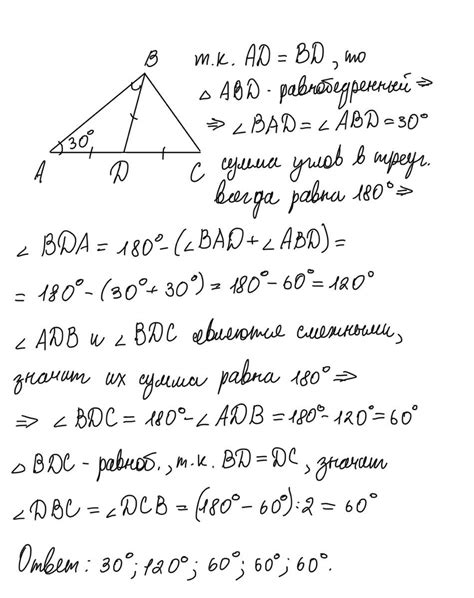 B
30°
A
D
C
т.к. AD = BD, то
△ ABD - равнобедренный ⇒
⇒ ∠BAD = ∠ABD = 30°
сумма углов в треуг.
всегда равна 180° ⇒
∠ BDA = 180° - (∠BAD + ∠ABD) =
= 180° - (30° + 30°) = 180° - 60° = 120°
∠ ADB и ∠ BDC являются смежными,
значит их сумма равна 180° ⇒
⇒ ∠ BDC = 180° - ∠ ADB = 180° - 120° = 60°
△ BDC - равноб., т.к. BD = DC, значит
∠DBC = ∠DCB = (180° - 60°) : 2 = 60°
Ответ: 30°; 120°; 60°; 60°; 60°.